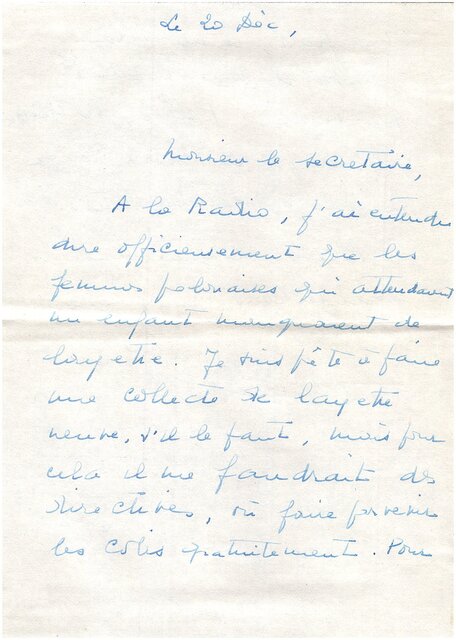 Le 20 Déc,
Monsieur le secretaire,
A la Radio, j'ai entendu
dire officieusement que les
femmes polonaises qui attendaient
un enfant manquaient de
layette. Je suis prête à faire
une collecte de layette
neuve, s'il le faut, mais pour
cela il me faudrait des
directives, où faire parvenir
les colis gratuitement. Pour